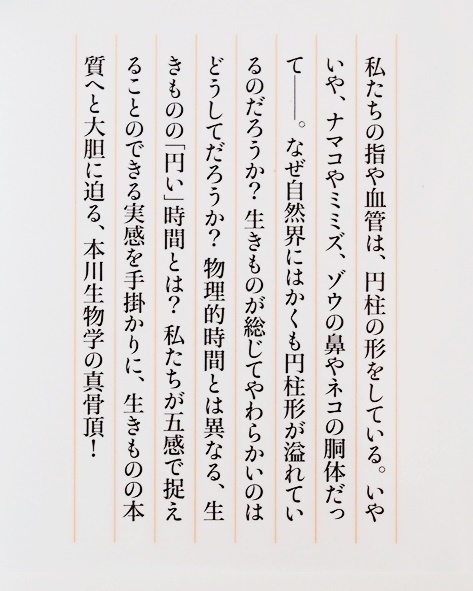 私たちの指や血管は、円柱の形をしている。いや
いや、ナマコやミミズ、ゾウの鼻やネコの胴体だっ
て――。なぜ自然界にはかくも円柱形が溢れてい
るのだろうか？ 生きものが総じてやわらかいのは
どうしてだろうか？ 物理的時間とは異なる、生
きものの「円い」時間とは？ 私たちが五感で捉え
ることのできる実感を手掛かりに、生きものの本
質へと大胆に迫る、本川生物学の真骨頂！